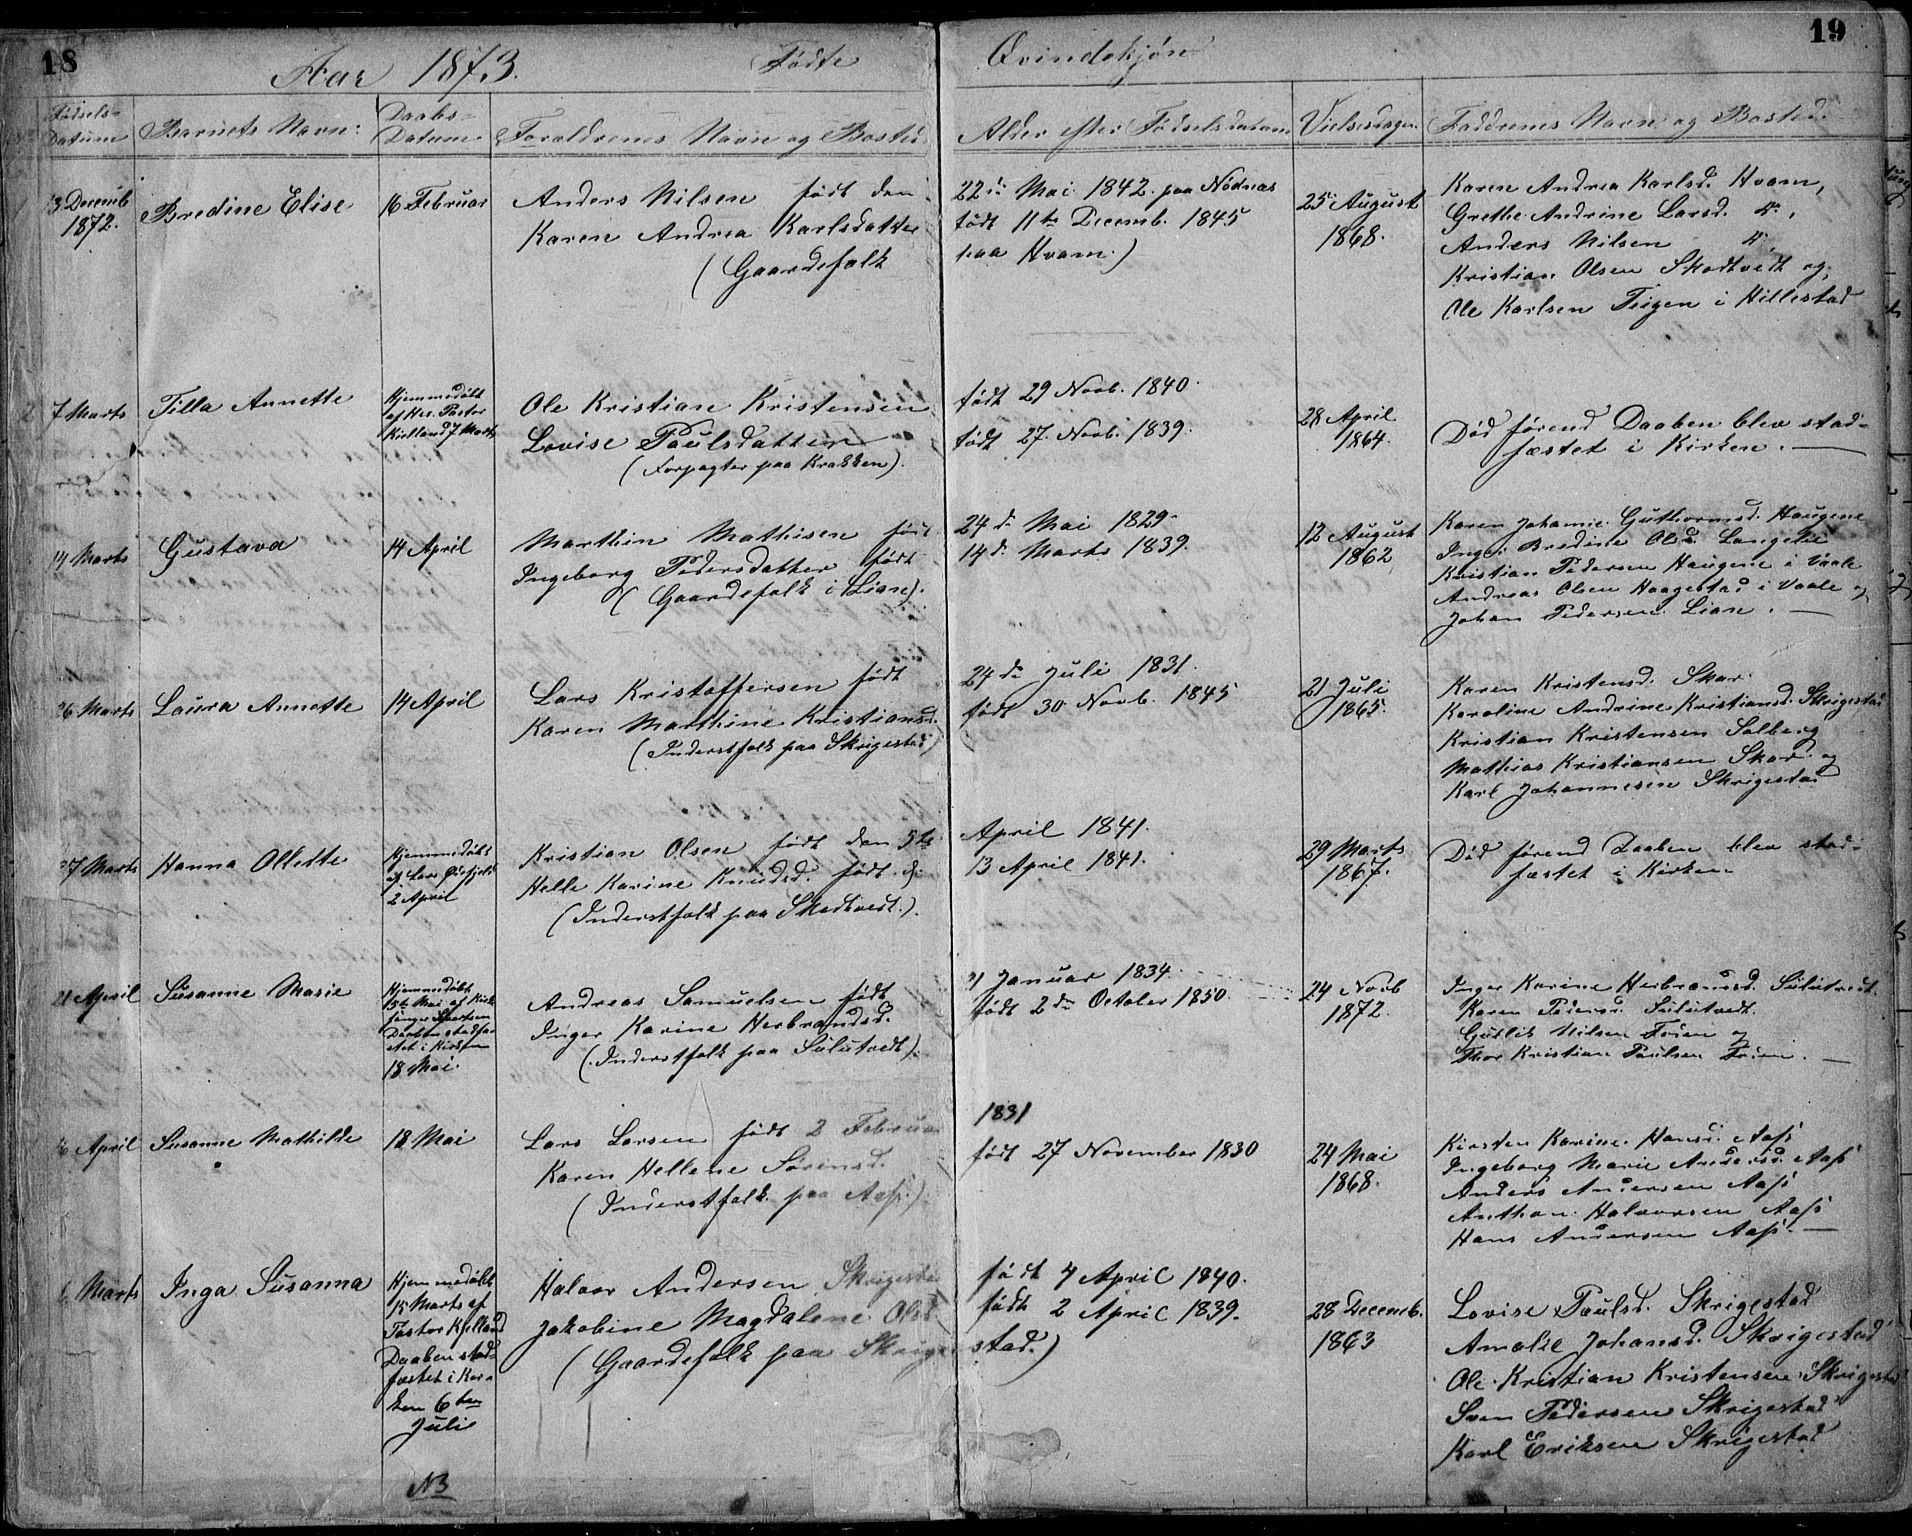 18
19
Aar 1873.
Födte
Qvindekjøn
Födsels-
Datum
Barnets Navn:
Daabs-
Datum
Foraldrenes Navn og Bosted
Alder efter Födselsdatum
Vielsesdagen
Faddrenes Navn og Bosted.
3 Decemb
1872.
Bredine Elise
16 Februar
Anders Nilsen födt den
Karen Andrea Karlsdatter
(Gaardefolk
22de Mai 1842. paa Nödnæs
födt 11te Decemb. 1845
paa Hvam.)
25 August
1868.
Karen Andrea Karlsd. Hvam,
Grethe Andrine Larsd. do,
Anders Nilsen do
Kristian Olsen Skodtvedt og,
Ole Karlsen Teigen i Hillestad
7 Marts
Tilla Annette
Hjemmedöbt
af Hr. Pastor
Kielland 7 Marts
Ole Kristian Kristensen
Lovise Paulsdatter
(Forpagter paa Krakken).
födt 29 Novb. 1840.
födt 27. Novb. 1839.
28 April
1864.
Död förend Daaben blev stad-
fæstet i Kirken.
14 Marts
Gustava
14 April
Marthin Mathisen födt
Ingeborg Pedersdatter födt
(Gaardefolk i Lian).
24de Mai 1829.
14de Marts 1839.
12 August
1862
Karen Johanne Guthormsd. Haugene
Inger Bredine Olsd.
Kristian Pedersen Haugene i Vaale
Andreas Olsen Haagestad i Vaale og
Johan Pedersen Lian.
26 Marts
Laura Annette
14 April
Lars Kristoffersen födt
Karen Marthine Kristiansd.
(Inderstfolk paa Skrigestad)
24de Juli 1831.
födt 30 Novb. 1845
21 Juli
1865.
Karen Kristensd. Skar.
Karoline Andrine Kristiansd. Skrigestad
Kristian Kristensen Solberg
Mathias Kristiansen Skar og
Karl Johannesen Skrigestad
27 Marts
Hanna Ollette
Hjemmedöbt
af Lars
2 April
Kristian Olsen födt den 5te
Helle Karine Knudsd. födt d.
(Inderstfolk paa Skodtvedt.).
April 1841.
13 April 1841.
29 Marts
1867.
Död förend Daaben blev stad-
fæstet i Kirken
21 April
Susanne Marie
Hjemmedöbt
15de Mai af Kirke
sanger
Daaben stadfæ-
stet i Kirken
18 Mai.
Andreas Samuelsen födt
Inger Karine Herbrandsd.
(Inderstfolk paa Sulutvedt).
21 Januar 1834.
födt 2den October 1850.
24 Novb
1872.
Inger Karine Herbransd. Sulutvedt.
Karen Pedersd. Sulutvedt.
Gullik Nilsen Foien og
Thor Kristian Paulsen Foien.
April
Susanne Mathilde
18 Mai
Lars Larsen födt 2 Februar
Karen Hellene Sörensd.
(Inderstfolk paa Aas.)
1831
födt 27 November 1830
24 Mai
1868.
Kirsten Karine Hansd. Aas
Ingeborg Marie Andersd. Aas
Anders Andersen Aas
Anthon Halvorsen Aas
Hans Andersen Aas.
Marts
Inga Susanna
Hjemmedöbt
15 Marts af
Pastor Kielland
Daaben stad-
fæstet i Kir-
ken 6te
Juli
Halvor Andersen Skrigestad
Jakobine Magdalene Olsd.
(Gaardefolk paa Skrige
födt 4 April 1840.
födt 2 April 1839.
stad.)
28 Decemb.
1863
Lovise Paulsd. Skrigestad
Amalie Johansd. Skrigestad
Ole Kristian Kristensen Skrigestad
Sven Pedersen Skrigestad
Karl Eriksen Skrigestad
NB